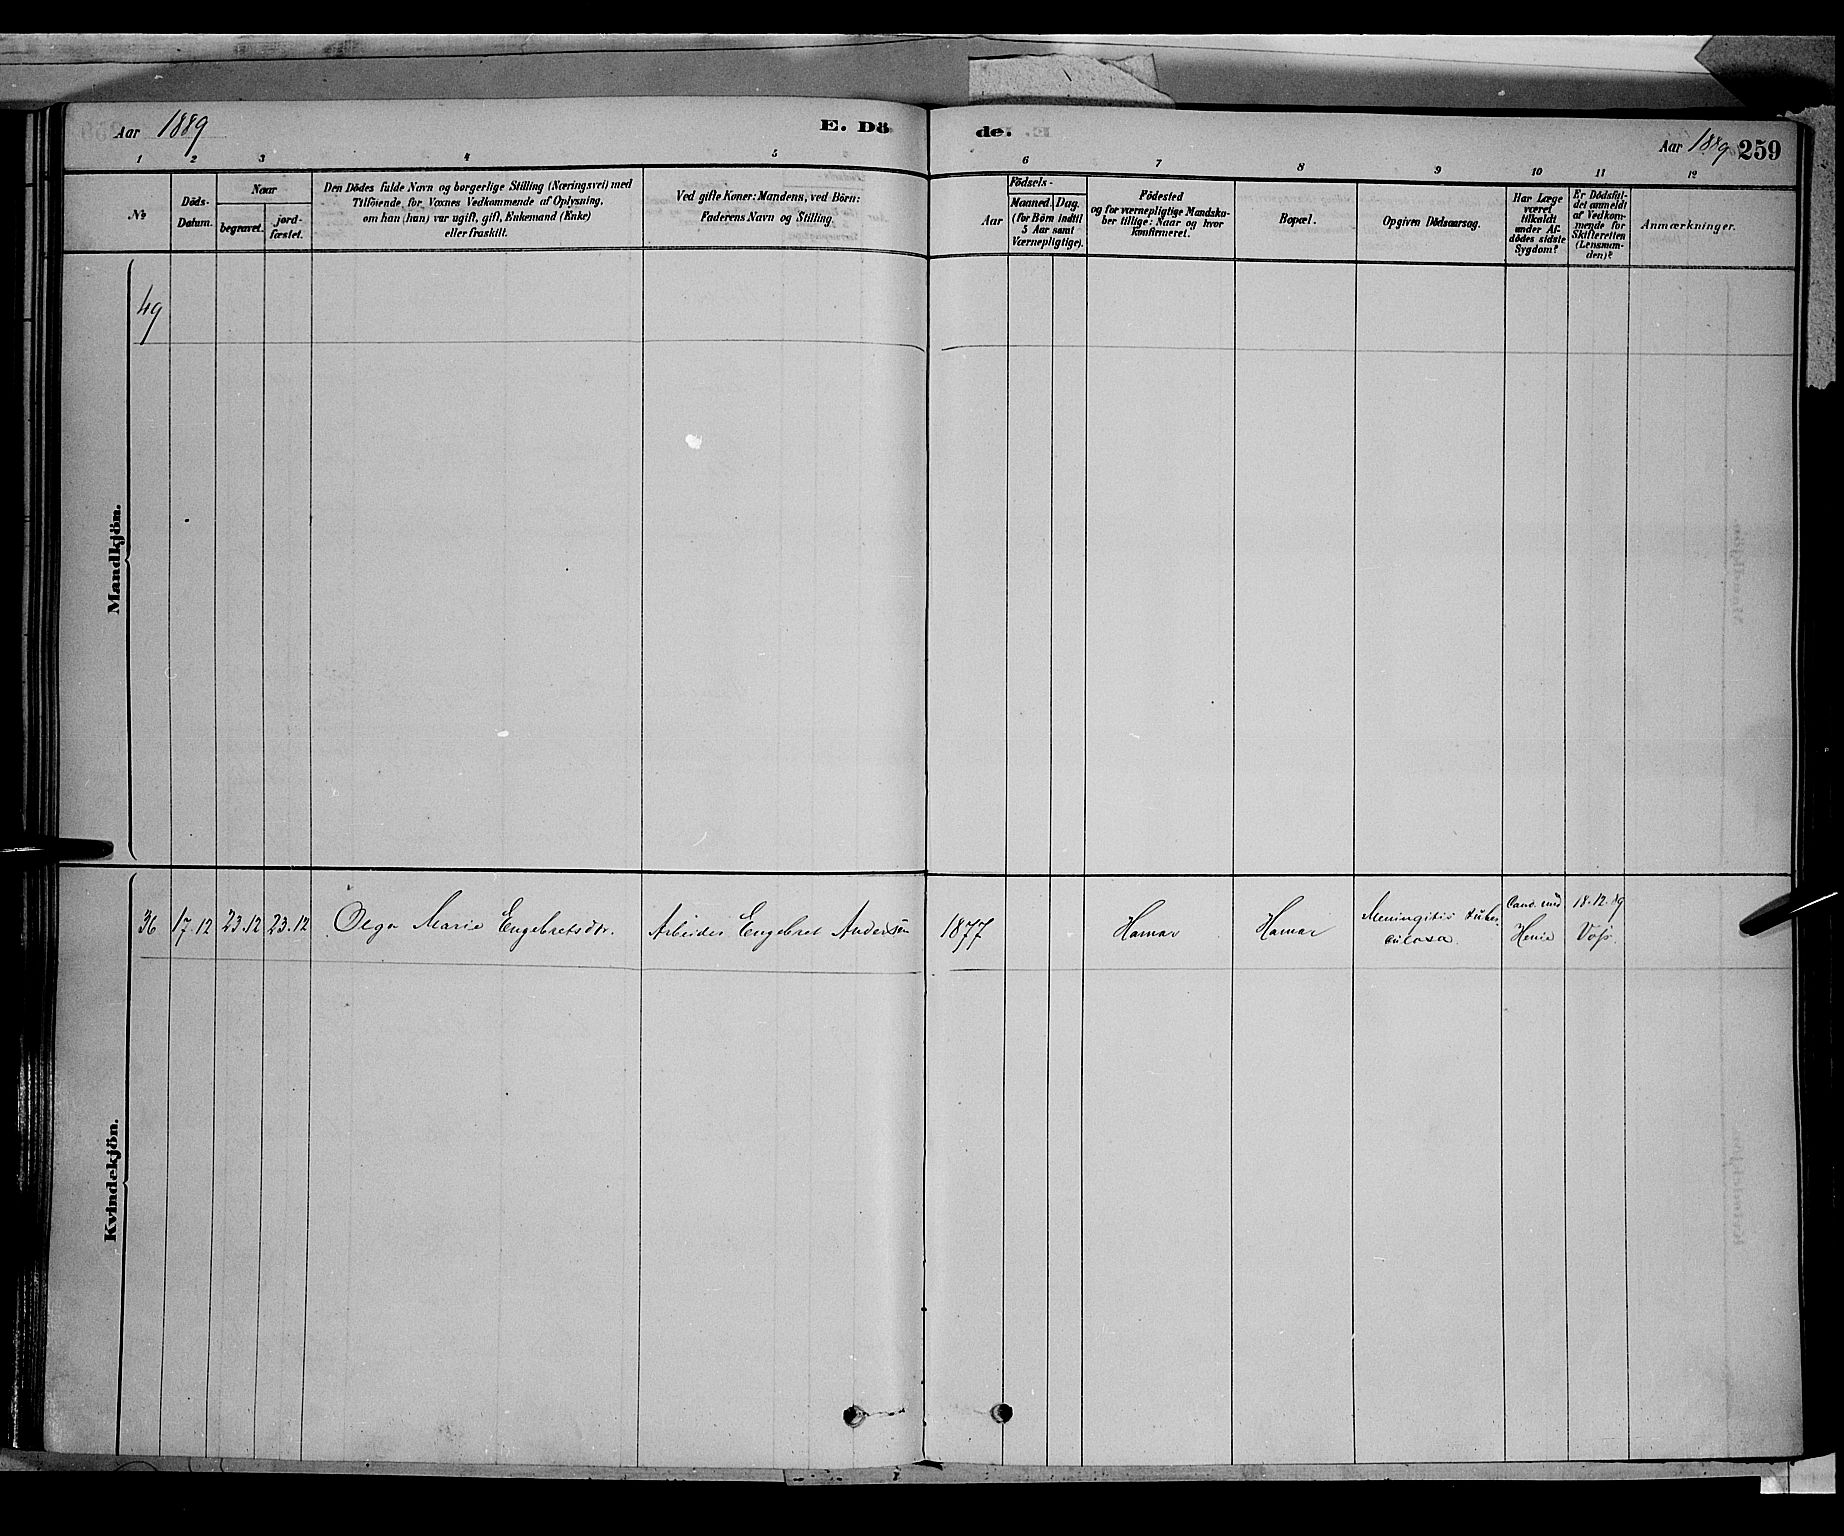 Aar 1889
E. Dö
de.
Aar 1889
259
1 2 3 4 5 6 7 8 9 10 11 12
No
Döds-
Datum.
Naar
begravet.
jord-
fæstet.
Den Dödes fulde Navn og borgerlige Stilling (Næringsvei) med
Tilföiende, for Voxnes Vedkommende af Oplysning,
om han (hun) var ugift, gift, Enkemand (Enke)
eller fraskilt.
Ved gifte Koner: Mandens, ved Börn:
Faderens Navn og Stilling.
Aar
Födsels-
Maaned. Dag.
(for Börn indtil
5 Aar samt
Værnepligtige).
Födested
og for værnepligtige Mandska-
ber tillige: Naar og hvor
konfirmeret.
Bopæl.
Opgiven Dödsaarsag.
Har Læge
været
tilkaldt
under Af-
dödes sidste
Sygdom?
Er Dödsfal-
det anmeldt
af Vedkom-
mende for
Skifteretten
(Lensman-
den)?
Anmærkninger.
Mandkjön.
49
Kvindekjön.
36 17.12 23.12 23.12 Olga Marie Engebretsdtr. Arbeider Engebret Andersen 1877 Hamar Hamar
Meningitis tuber
culosa.
Cand. med
Henie
18.12.89